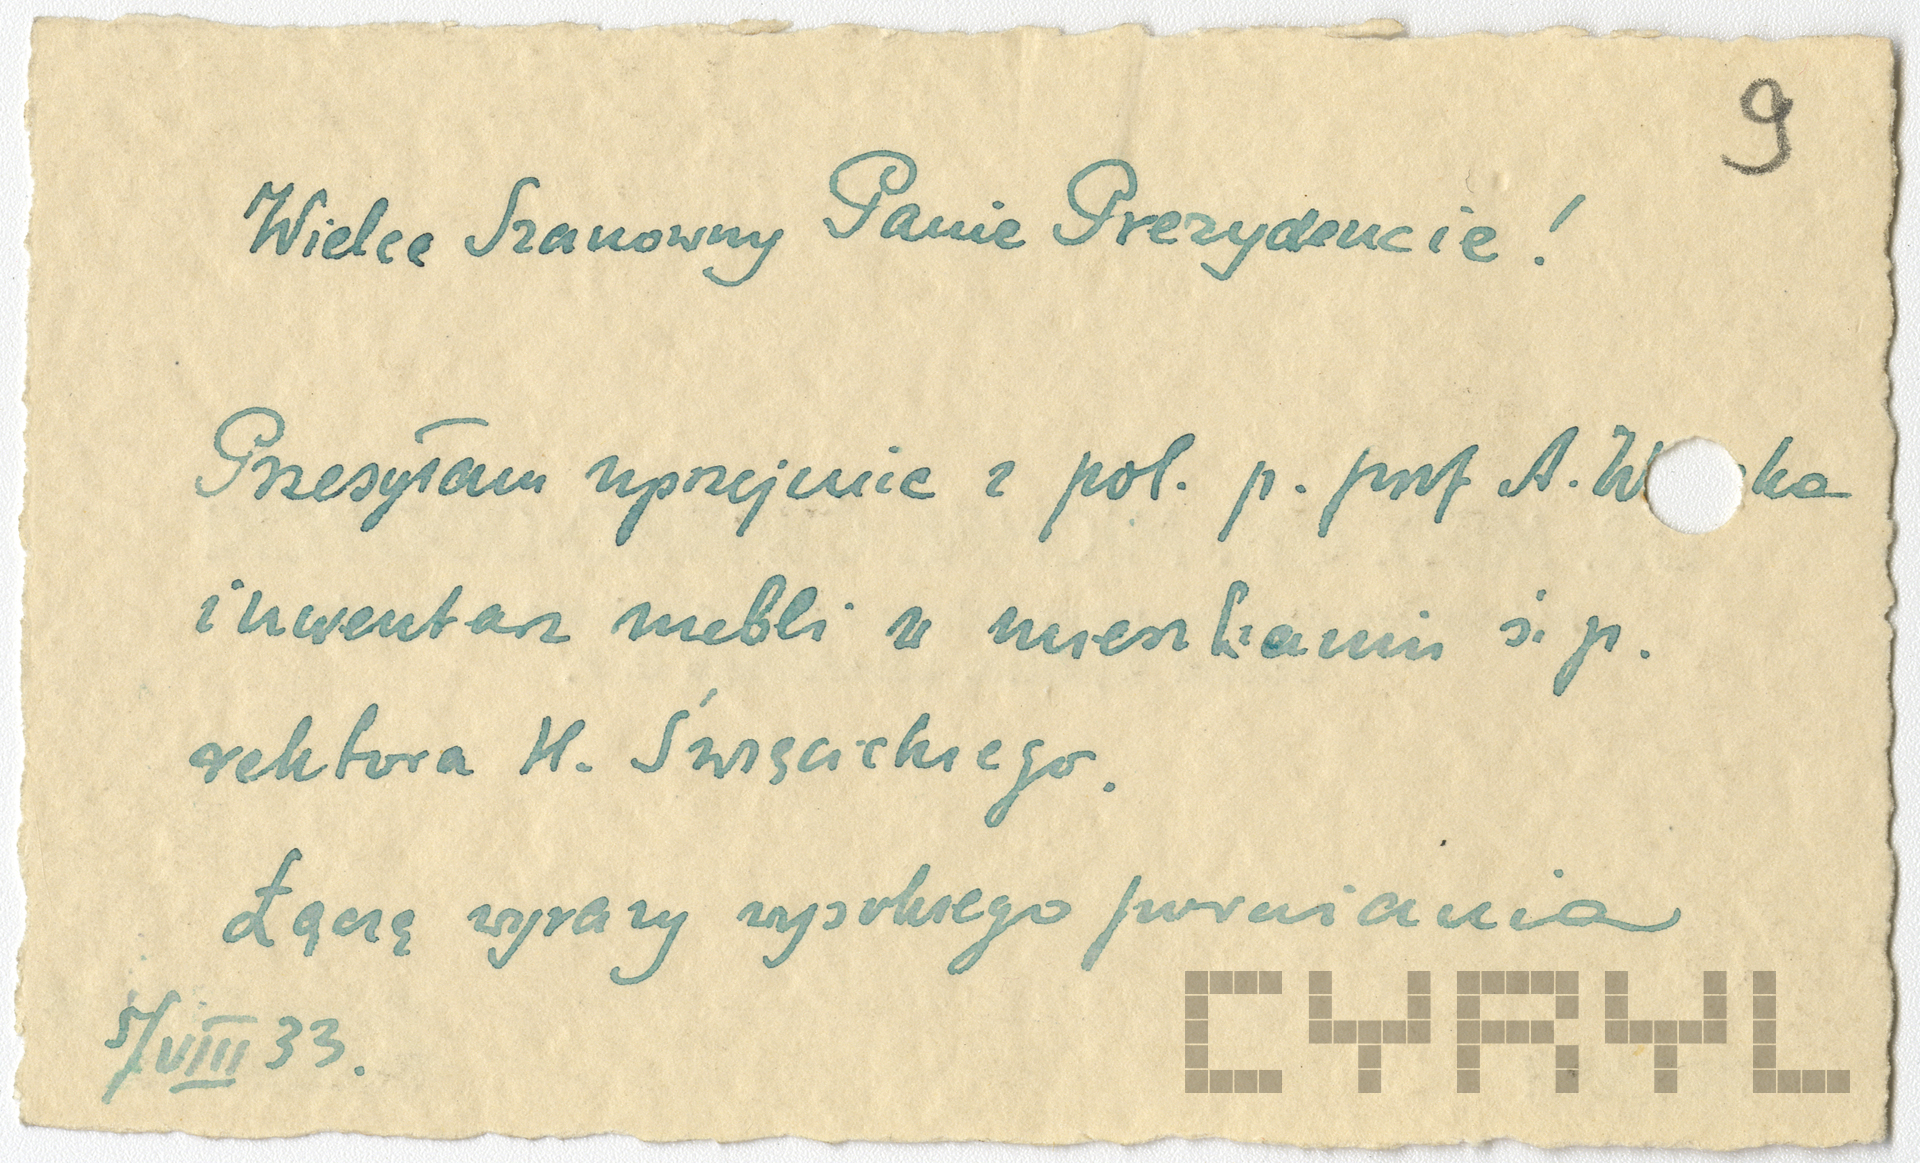 9
Wielce Szanowny Panie Prezydencie!
Przesyłam uprzejmie z pol. p. prof A.
inwentarz mebli w mieszkaniu ś. p.
rektora H. Święcickiego.
Łączę wyrazy wysokiego poważania
5/VIII 33.
CYRYL